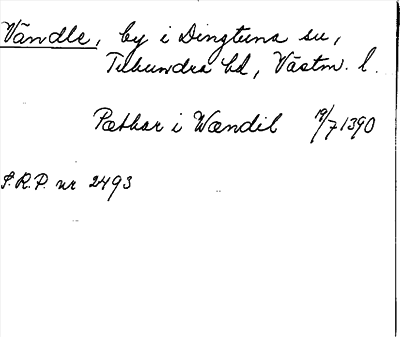 Vändle, by i Dingtuna sn,
Tuhundra hd, Västm. l.
Pæthar i Wændil 19/7 1390
S.R.P. nr 2493